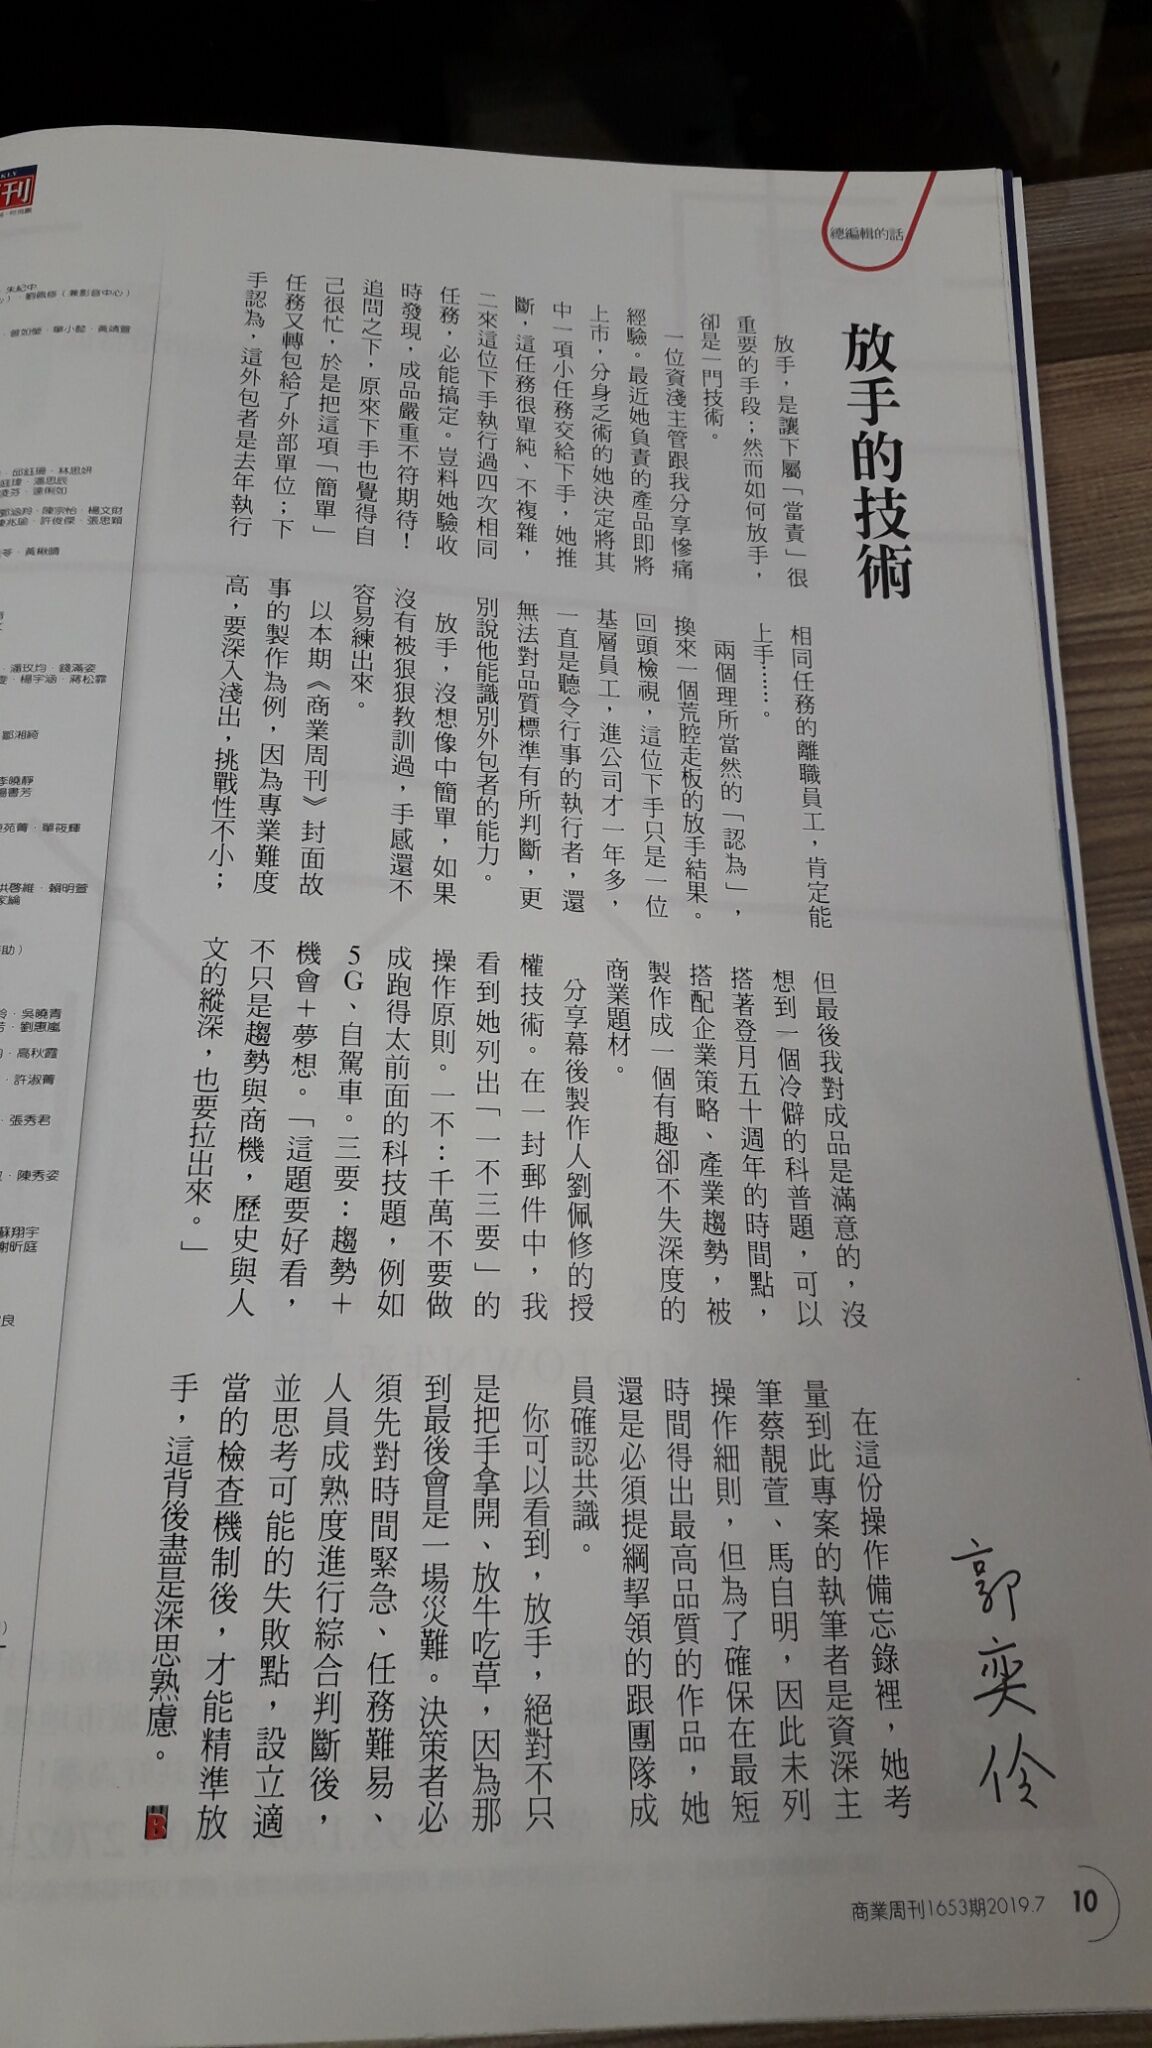 總編輯的話
放手的技術
郭奕伶
放手，是讓下屬「當責」很
重要的手段；然而如何放手，
卻是一門技術。
一位資淺主管跟我分享慘痛
經驗。最近她負責的產品即將
上市，分身乏術的她決定將其
中一項小任務交給下手，她推
斷，這任務很單純、不複雜，
二來這位下手執行過四次相同
任務，必能搞定。豈料她驗收
時發現，成品嚴重不符期待！
追問之下，原來下手也覺得自
己很忙，於是把這項「簡單」
任務又轉包給了外部單位；下
手認為，這外包者是去年執行
相同任務的離職員工，肯定能
上手……。
兩個理所當然的「認為」，
換來一個荒腔走板的放手結果。
回頭檢視，這位下手只是一位
基層員工，進公司才一年多，
一直是聽令行事的執行者，還
無法對品質標準有所判斷，更
別說他能識別外包者的能力。
放手，沒想像中簡單，如果
沒有被狠狠教訓過，手感還不
容易練出來。
以本期《商業周刊》封面故
事的製作為例，因為專業難度
高，要深入淺出，挑戰性不小；
但最後我對成品是滿意的，沒
想到一個冷僻的科普題，可以
搭著登月五十週年的時間點，
搭配企業策略、產業趨勢，被
製作成一個有趣卻不失深度的
商業題材。
分享幕後製作人劉佩修的授
權技術。在一封郵件中，我
看到她列出「一不三要」的
操作原則。一不：千萬不要做
成跑得太前面的科技題，例如
5G、自駕車。三要：趨勢＋
機會＋夢想。「這題要好看，
不只是趨勢與商機，歷史與人
文的縱深，也要拉出來。」
在這份操作備忘錄裡，她考
量到此專案的執筆者是資深主
筆蔡靚萱、馬自明，因此未列
操作細則，但為了確保在最短
時間得出最高品質的作品，她
還是必須提綱挈領的跟團隊成
員確認共識。
你可以看到，放手，絕對不只
是把手拿開、放牛吃草，因為那
到最後會是一場災難。決策者必
須先對時間緊急、任務難易、
人員成熟度進行綜合判斷後，
並思考可能的失敗點，設立適
當的檢查機制後，才能精準放
手，這背後盡是深思熟慮。
商業周刊1653期2019.7 10
刊
朱紀中
劉佩修（兼影音中心）
曾如瑩．單小懿．黃靖萱
邱鈺珊．林思妍
庭瑋．潘思辰
凌芬．連俐如
鄧涵羚．陳宗怡．楊文財
陳兆瑜．許俊傑．張思穎
黃楸晴
潘玫均．錢滿姿
楊宇涵．蔣松霏
鄒湘綺
李曉靜
楊書芳
苑菁．單筱輝
洪啓維．賴明萱
家綸
助）
吳曉青
劉惠嵐
高秋霞
許淑菁
張秀君
陳秀姿
蘇翔宇
謝昕庭
良